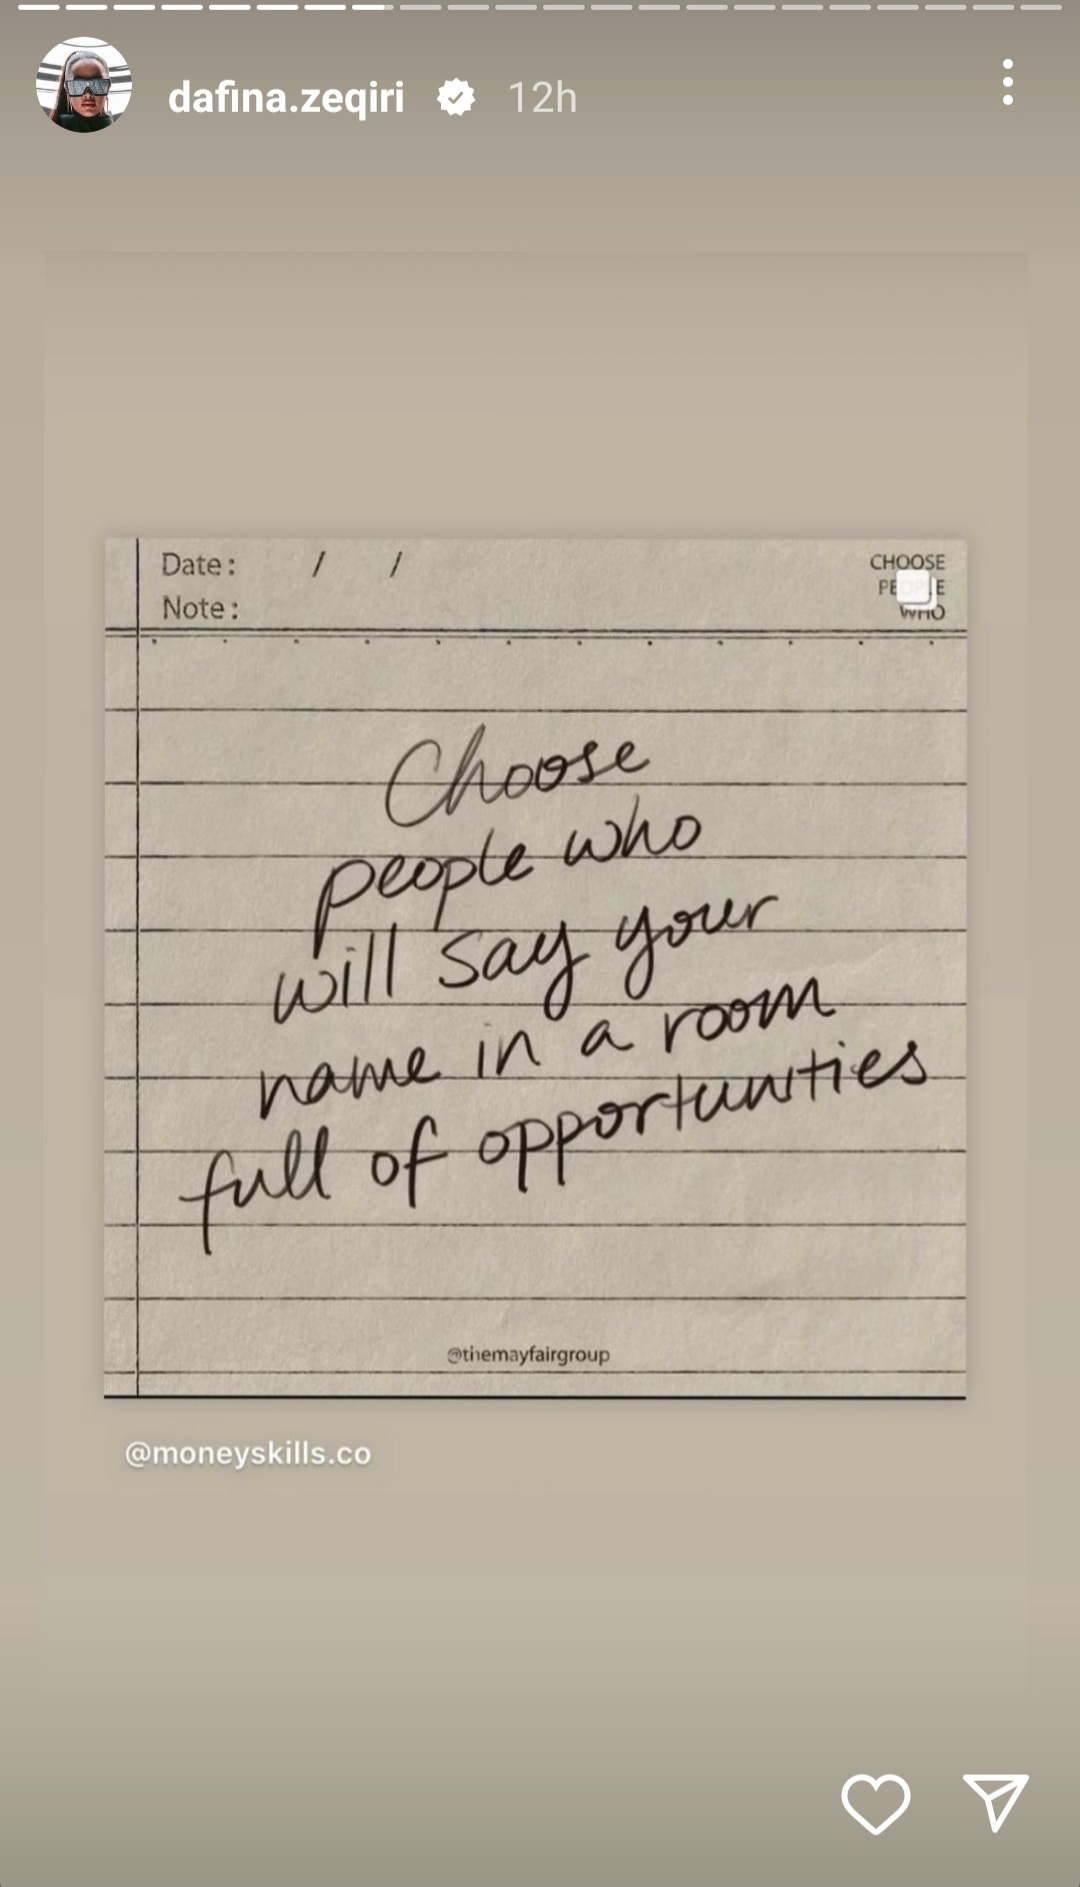 dafina.zeqiri 12h
Date: / /
Note:
CHOOSE
PEOPLE
WHO
Choose
people who
will say your
name in a room
full of opportunities
@themayfairgroup
@moneyskills.co